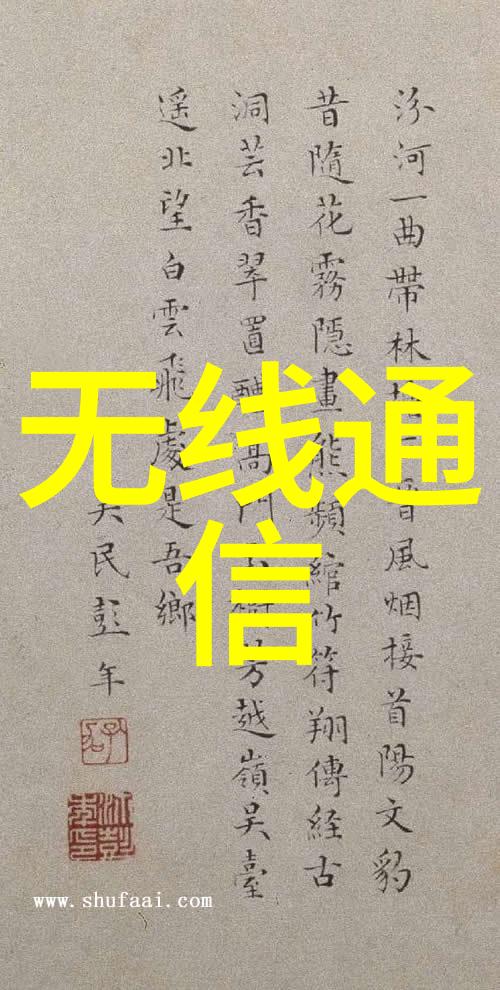 汾河一曲帶林晉風烟接首陽文豹
昔隨花霧隱畫熊頻綰竹符翔傳經古
洞芸香翠置醴高門芳越嶺吴臺
遥北望白雲飛處是吾鄉
吴民彭年
无线通
信
www.shufaai.com